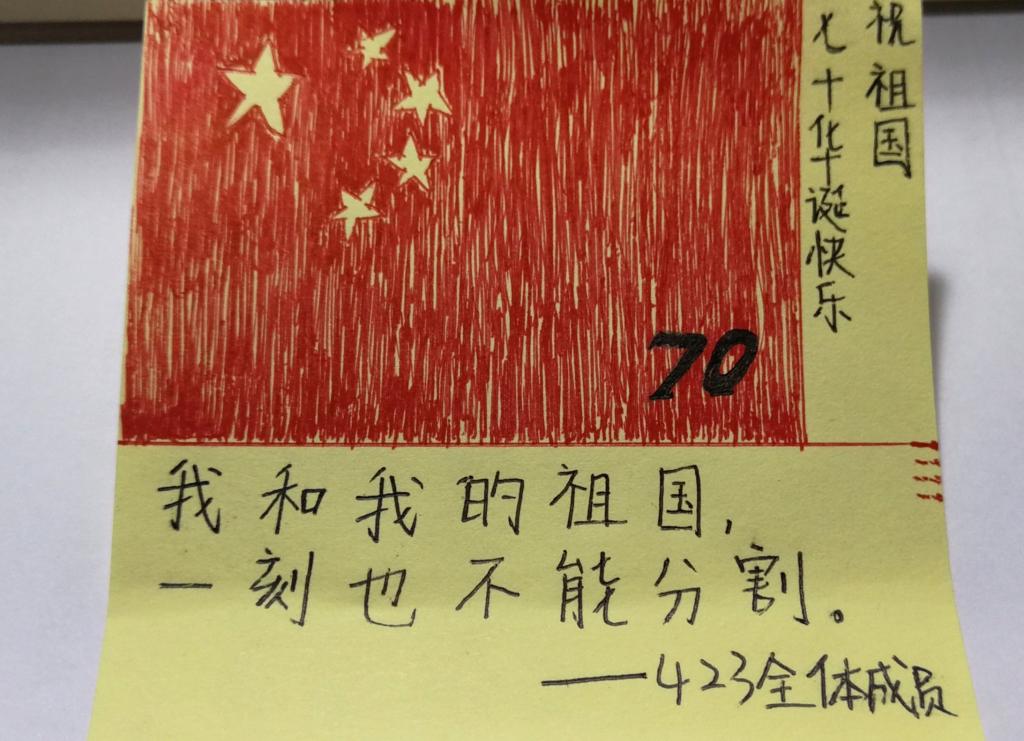 祝祖国
七十华诞快乐
70
我和我的祖国,
一刻也不能分割。
——423全体成员